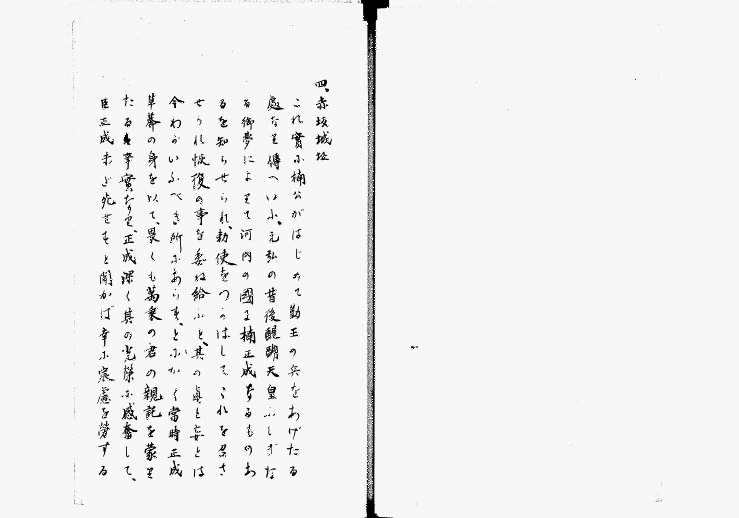 四、赤坂城址
これ實に楠公がはじめて勤王の兵をあげたる
處なり傳へいふ、元弘の昔後醍醐天皇ふしぎな
る御夢によりて河内の國に楠正成なるものあ
るを知らせられ、勅使をつかはしてこれを召さ
せられ恢復の事を委ね給ふと、其の眞と妄とは
今わがいふべき所にあらず、とにかく當時正成
草莽の身を以て、畏くも萬乗の君の親託を蒙り
たる事實たり、正成深く其の光榮に感奮して、
臣正成未だ死せずと聞かば幸に宸慮を勞する